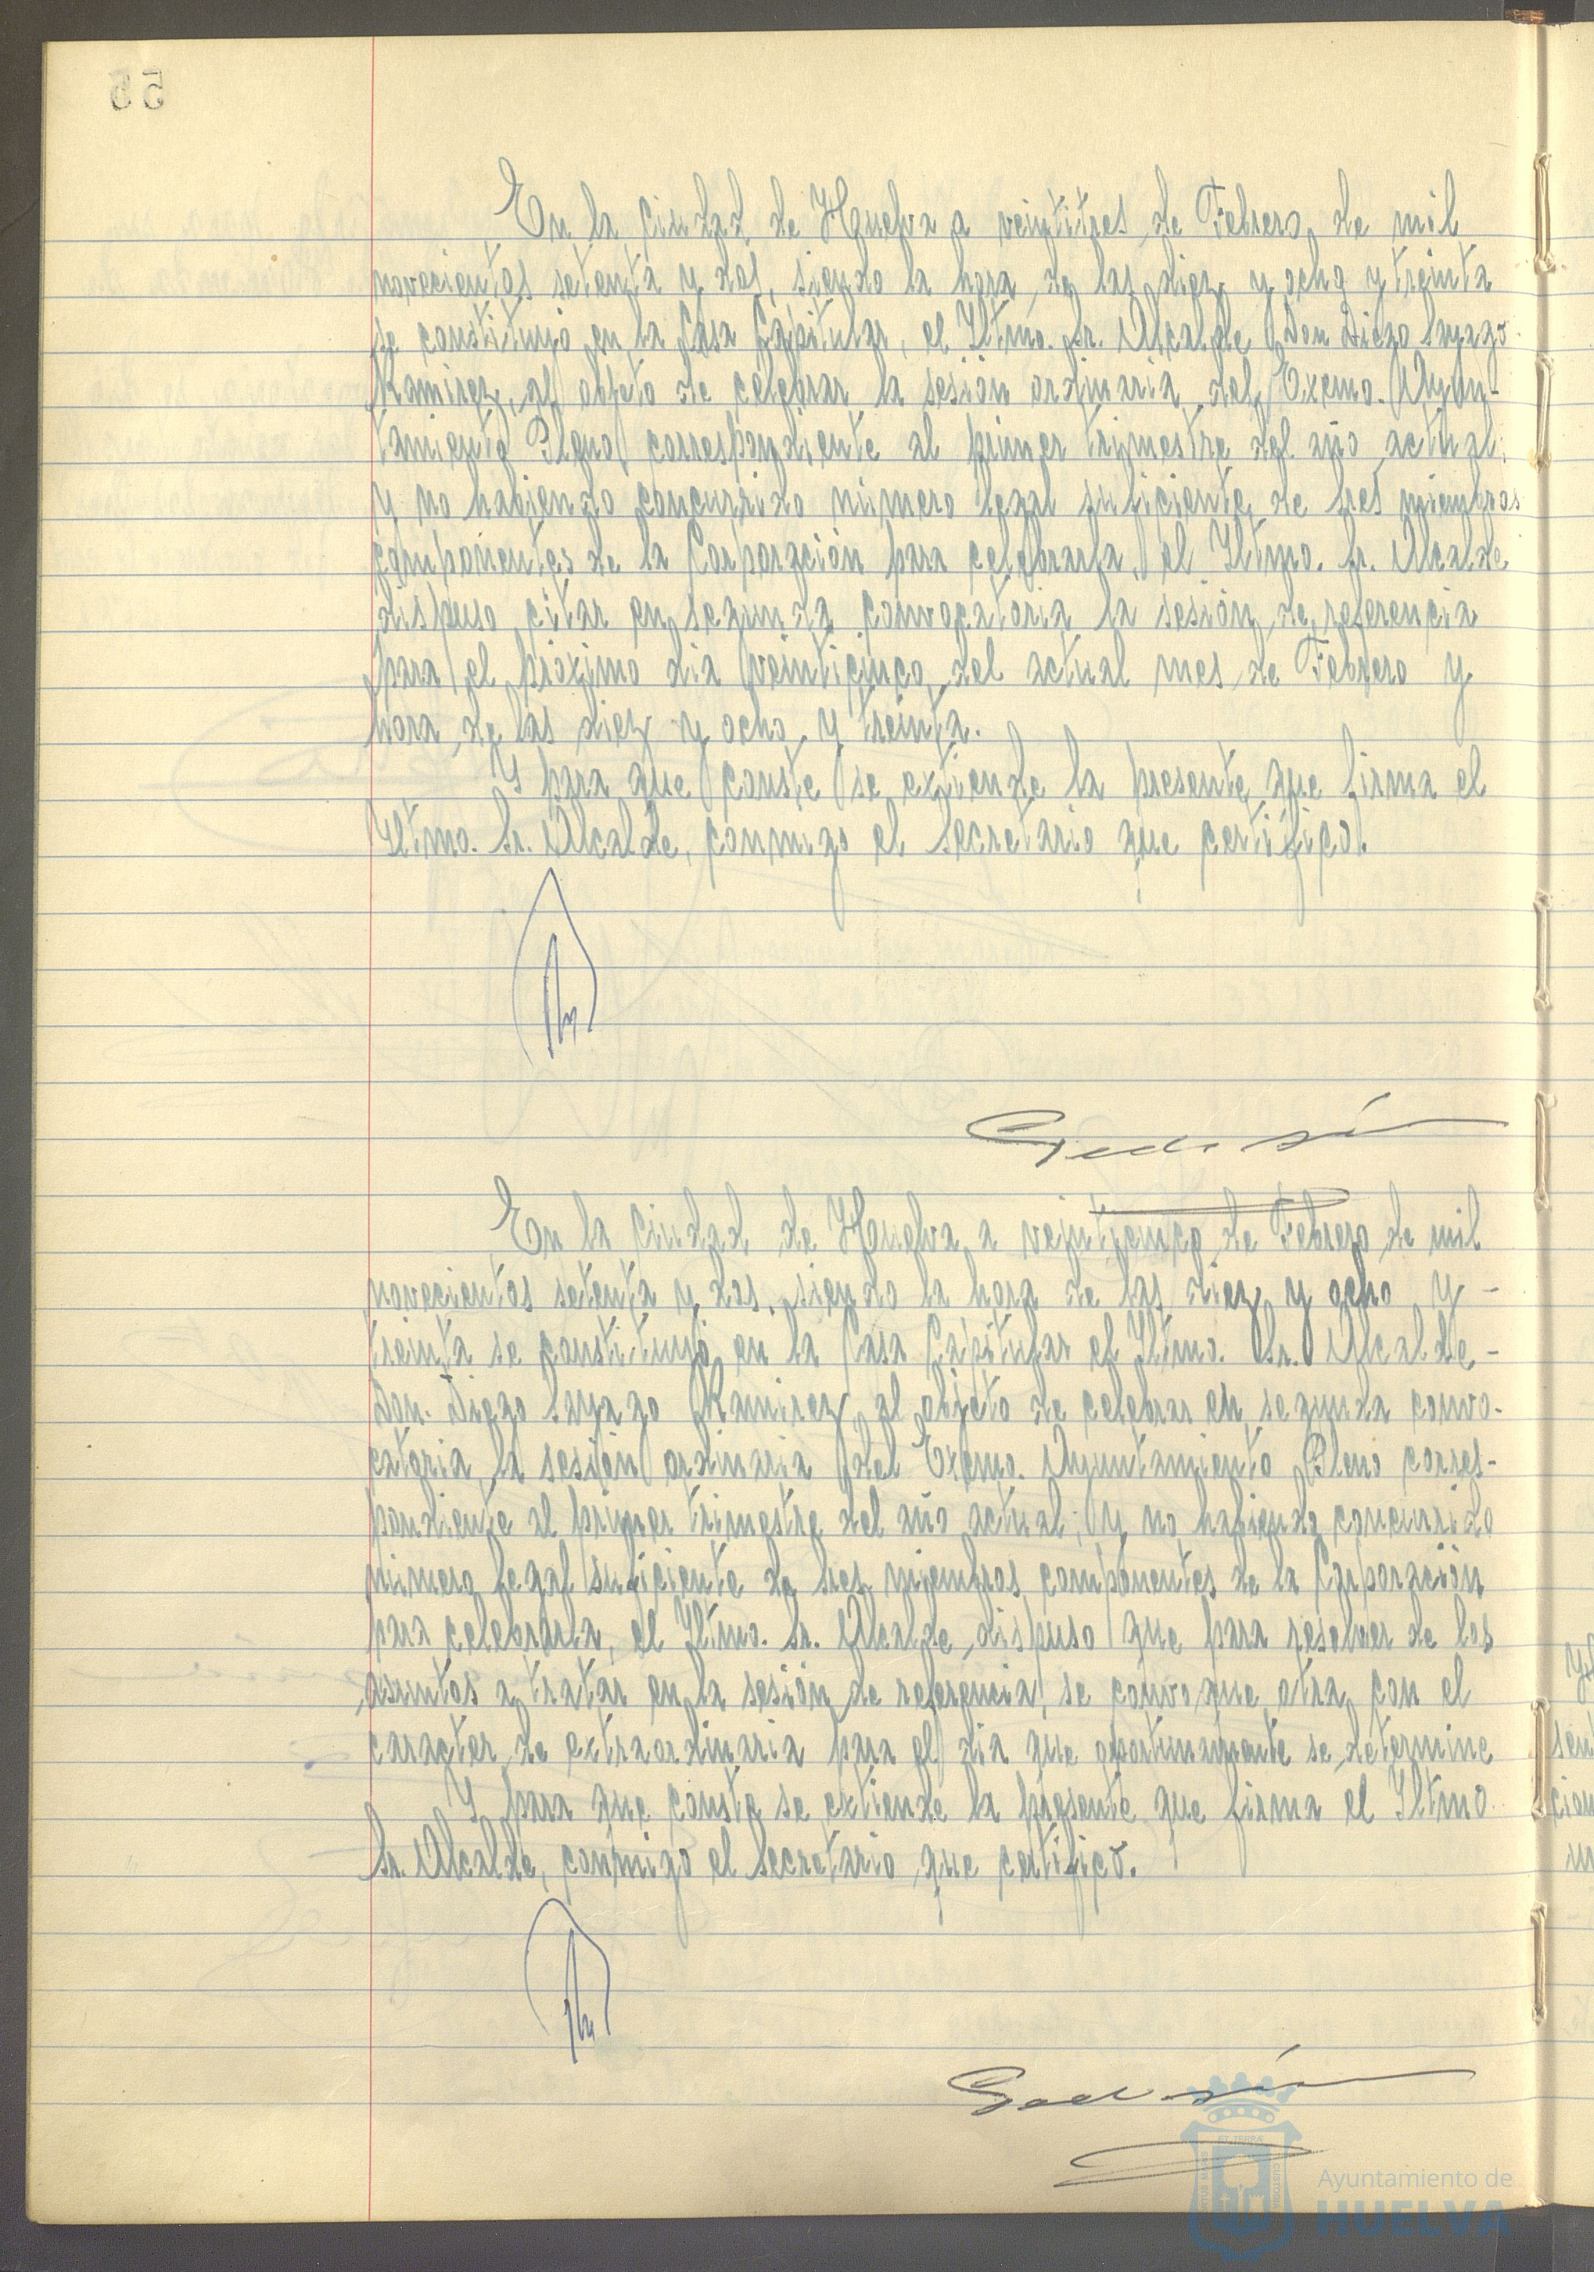 55
En la Ciudad de Huelva a veintitres de Febrero de mil
novecientos setenta y dos, siendo la hora de las diez y ocho y treinta
se constituyó en la Casa Capitular, el Iltmo. Sr. Alcalde Don Diego Sayago
Ramirez, al objeto de celebrar la sesión ordinaria del Excmo. Ayun-
tamiento Pleno correspondiente al primer trimestre del año actual;
y no habiendo concurrido número legal suficiente de sres miembros
componentes de la Corporación para celebrarla, el Iltmo. Sr. Alcalde
dispuso citar en segunda convocatoria la sesión de referencia
para el próximo dia veinticinco del actual mes de Febrero y
hora de las diez y ocho y treinta.
Y para que conste se extiende la presente que firma el
Iltmo. Sr. Alcalde, conmigo el Secretario que certifico.
En la Ciudad de Huelva a veinticinco de Febrero de mil
novecientos setenta y dos, siendo la hora de las diez y ocho y -
treinta se constituyó en la Casa Capitular el Iltmo. Sr. Alcalde -
Don. Diego Sayago Ramirez al objeto de celebrar en segunda convo-
catoria la sesión ordinaria del Excmo. Ayuntamiento Pleno corres-
pondiente al primer trimestre del año actual; y no habiendo concurrido
número legal suficiente de sres miembros componentes de la Corporación
para celebrarla, el Iltmo. Sr. Alcalde dispuso que para resolver de los
asuntos a tratar en la sesión de referencia, se convoque otra con el
caracter de extraordinaria para el dia que oportunamente se determine
Y para que conste se extiende la presente que firma el Iltmo.
Sr. Alcalde, conmigo el Secretario que certifico.
Ayuntamiento de
HUELVA